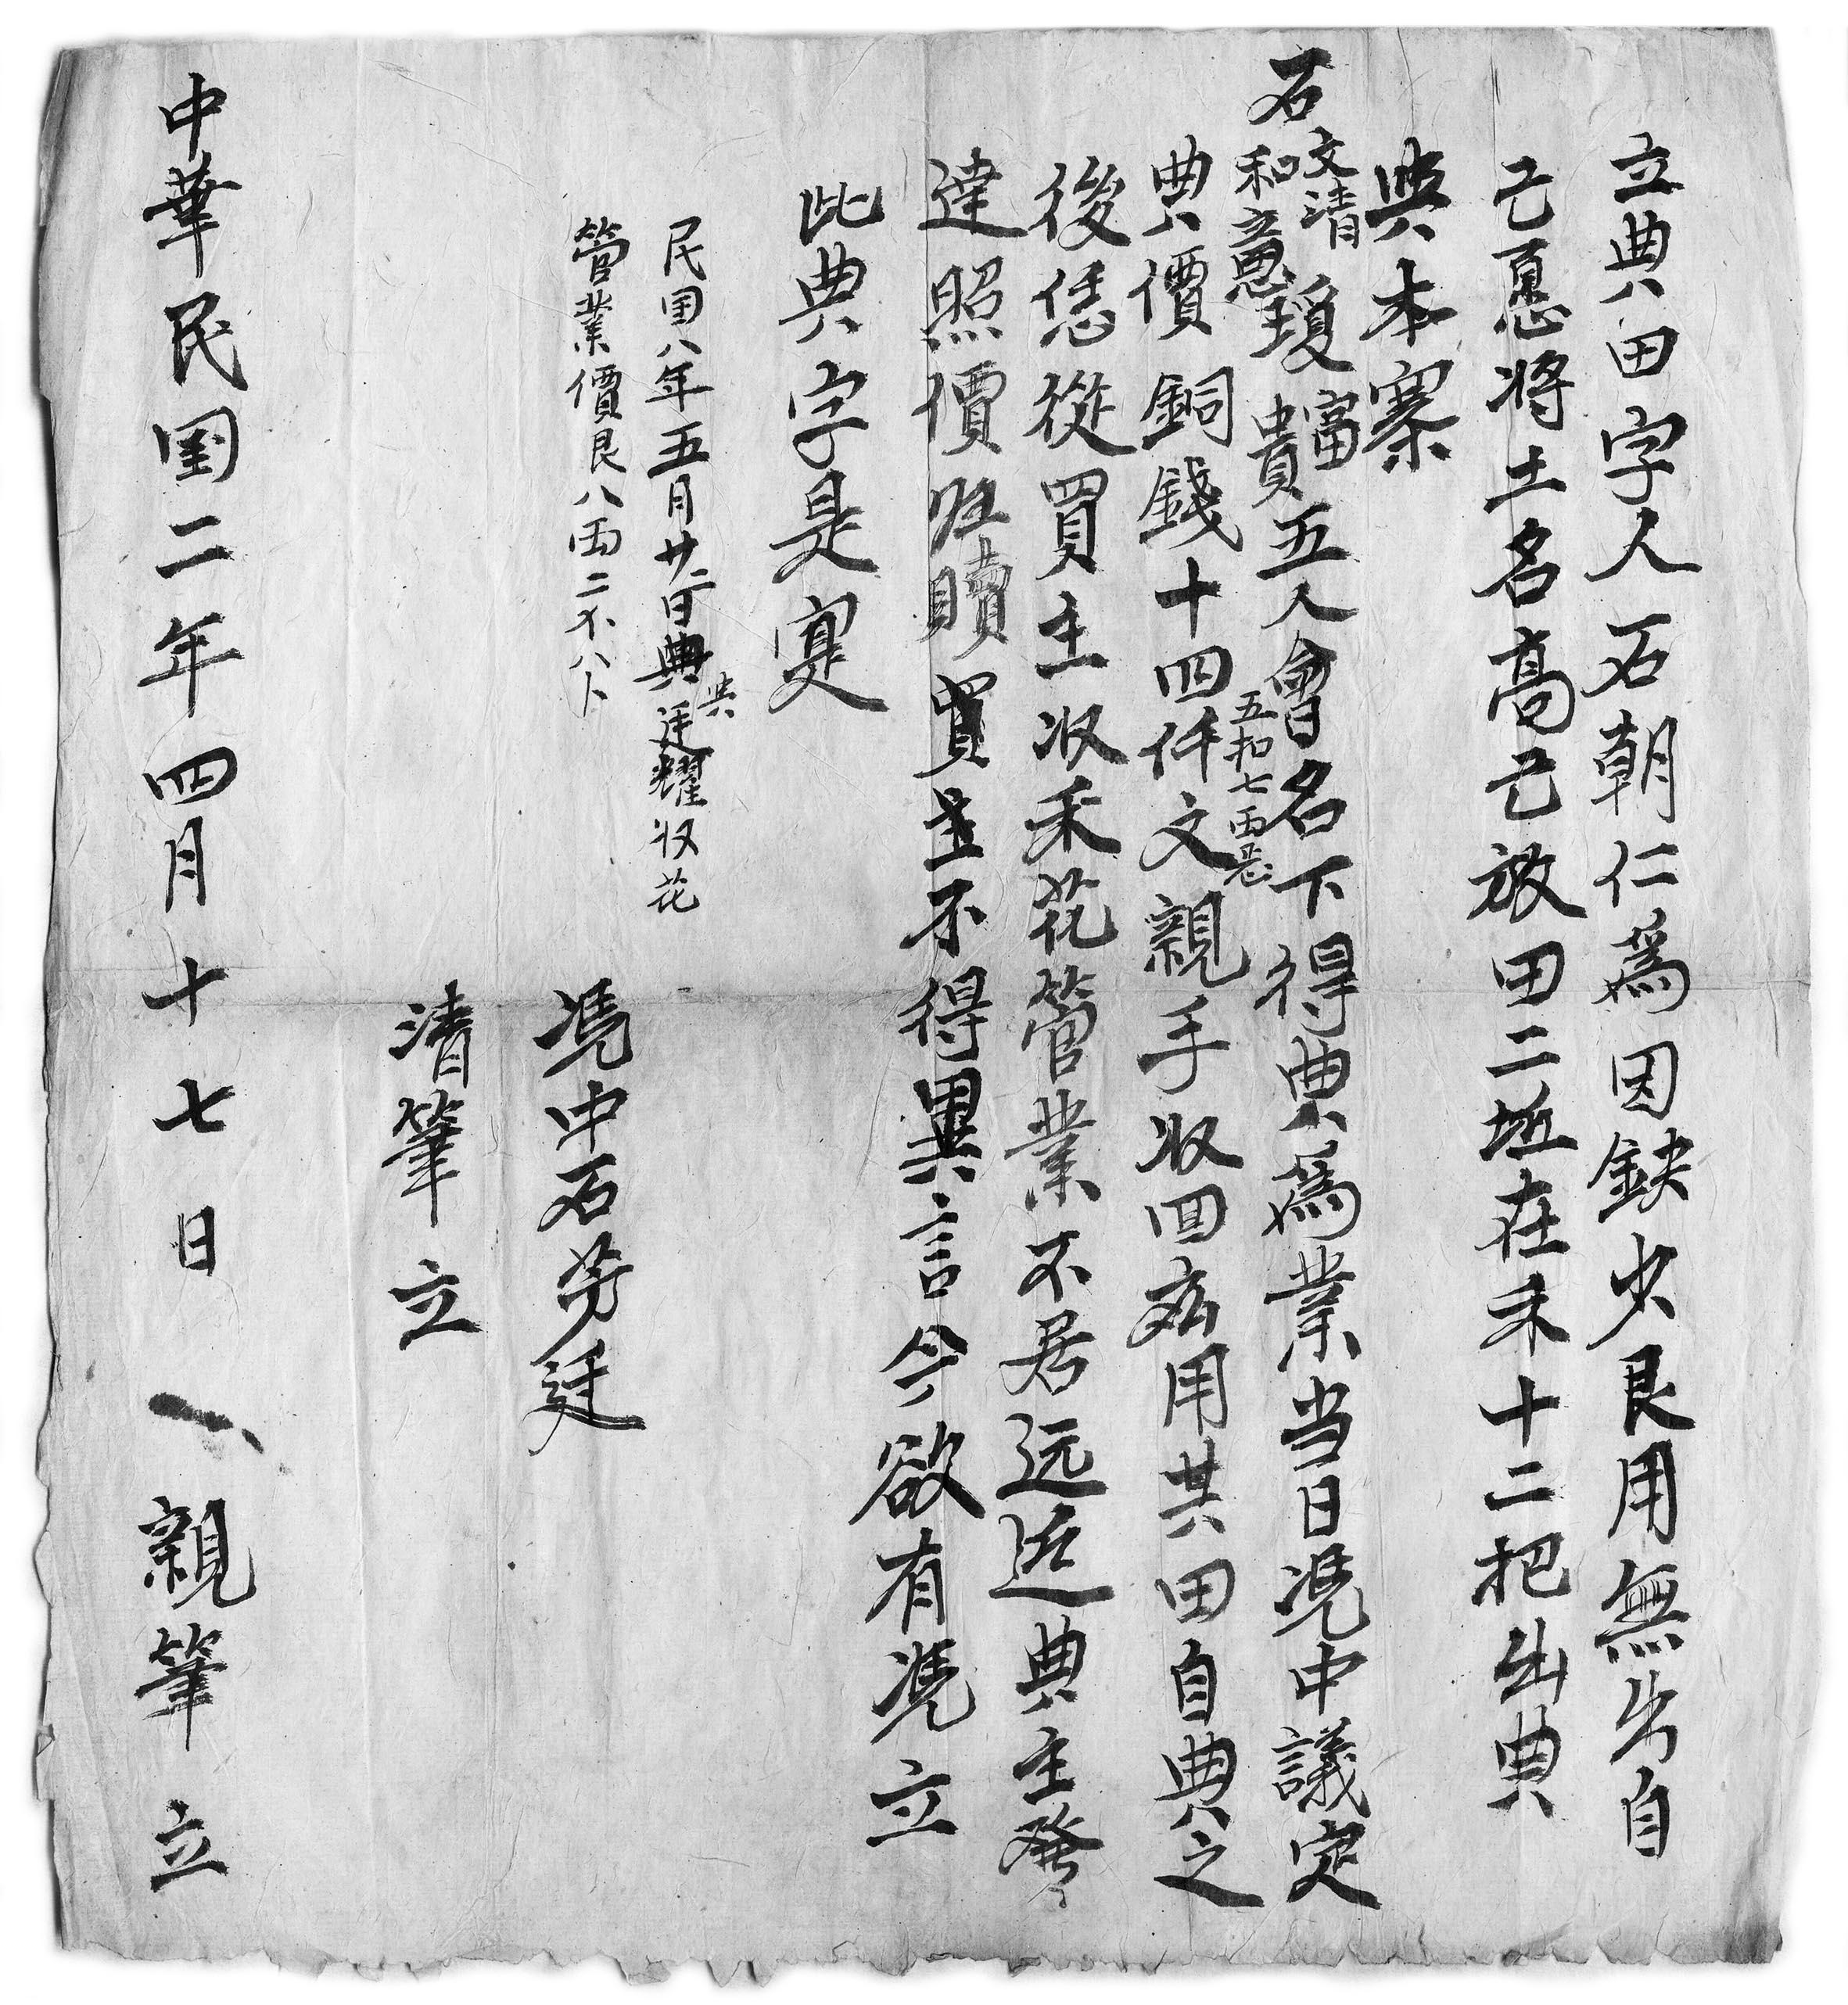 立典田字人石朝仁爲因缺少艮用無出自
己愿將土名高己放田二坵在禾十二把出典
與本寨
石文清和意瓊富貴五人會名下得典爲業当日凴中議定
典價銅錢十四仟文親手收回应用其田自典之
五扣七両悲
後恁從買主收禾花管業不居远近典主發
達照價贖買主不得異言今欲有凴立
此典字是寔
民国八年五月廿二日典與廷耀收花
管業價艮八両二不八卜
凴中石芳廷
清筆立
中華民国二年四月十七日親筆立